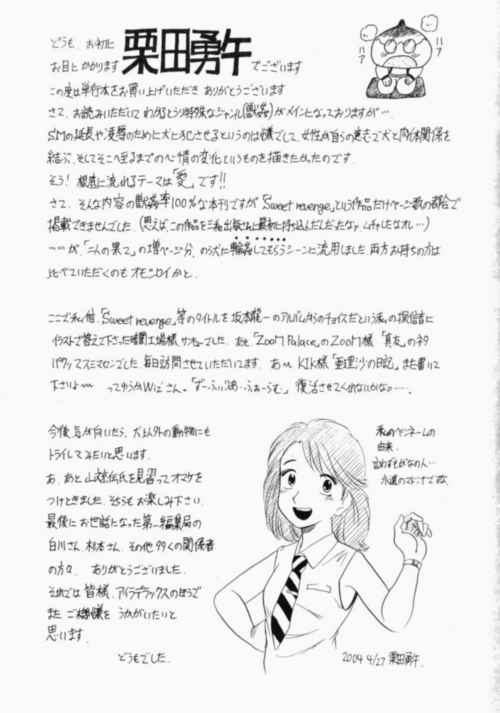 どうも、お初に
お目にかかります 栗田勇午 でございます
ハァ ハァ
この度は単行本をお買い上げいただき ありがとうございます
さて、お読みいただいて わかるとうり特殊なジャンル(獣姦)がメインとなっておりますが…
SMの延長や凌辱のために犬に犯させるというのは 嫌でして、女性が自らの意志で犬と肉体関係を
結ぶ、そしてそこへ至るまでの心情の変化というものを描きたかったのです。
そう! 根底に流れるテーマは「愛」です!!
さて、そんな内容の獣姦率100%な本刊ですが「Sweet revenge」という作品だけページ数の都合で
掲載できませんでした。(思えば この作品を 出版社に最初に持ち込んだんだったなァ ムチャしたなオレ…)
が、「二人の果て」の増ページ分、のら犬に輪姦してもらうシーンに流用しました 両方お持ちの方は
比べていただくのも オモシロイかと。
ここで私信、「Sweet revenge」等のタイトルを坂本龍一のアルバムからのチョイスだという私の
イラストで答えて下さった 工場様 サンキューでした。あと「ZOOM Palace」のZOOM様「真友」のネタ
パクッてスミマセンでした 毎日訪問させていただいてます。あ KIK様「亜理沙の日記」また書いて
下さいよ〜 ってゆうかWizさん。 復活させてくれないかな…。
今後 気が向いたら、犬以外の動物にも
トライしてみたいと思います。
あ、あと 氏を見習ってオマケを
つけときました そちらもお楽しみ下さい
最後にお世話になった第一編集局の
白川さん、杉本さん、その他多くの関係者
の方々、ありがとうございました。
それでは皆様、アイラデラックスのほうで
また ご機嫌を うかがいたいと
思います。
どうもでした。
私のペンネームの
由来、
言わずもがなの人…
永遠のマドンナですな
2004 4/27 栗田勇午